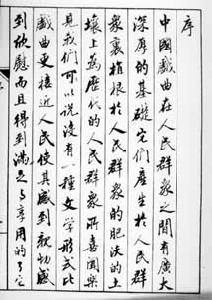 序
中國戲曲在人民群衆之間有廣大
深厚的基礎它們產生於人民群
衆裏植根於人民群衆的肥沃的土
壤上為歷代的人民群衆所喜聞樂
見我們可以說沒有一種文學形式比
戲曲更接近人民使其感到親切感
到欣慰而且得到滿足与享用的了它